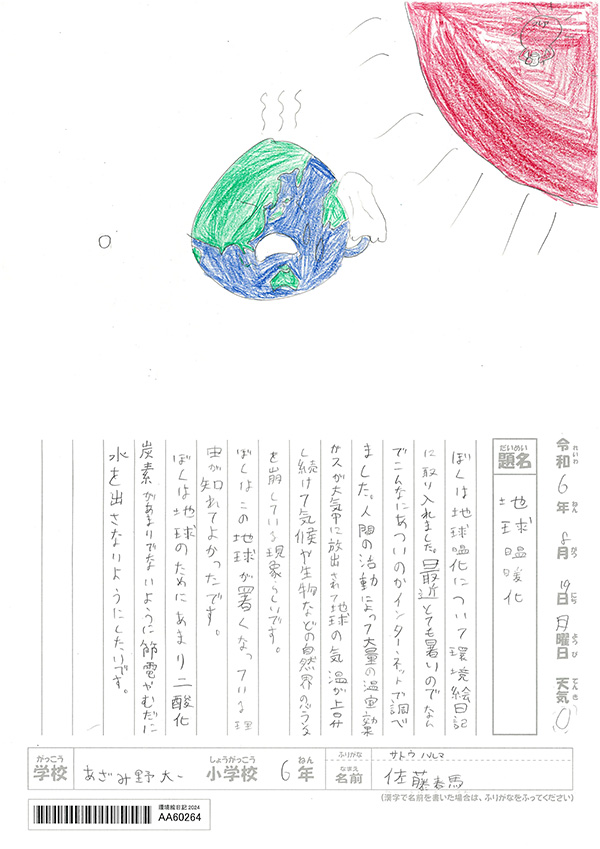 令和6年8月19日月曜日 天気
れいわ ねん がつ にち ようび てんき
だいめい
題名 地球温暖化
ぼくは地球温化について環境絵日記
に取り入れました。最近とても暑いのでなん
でこんなにあついのかインターネットで調べ
ました。人間の活動によって大量の温室効果
ガスが大気中に放出されて地球の気温が上昇
し続けて気候や生物などの自然界のバランス
を崩している現象らしいです。
ぼくはこの地球が署くなっている理
由が知れてよかったです。
ぼくは地球のためにあまり二酸化
炭素があまりでないように節電やむだに
水を出さないようにしたいです。
がっこう しょうがっこう ねん
学校 あざみ野第一 小学校 6年
ふりがな サトウ ハルマ
なまえ
名前 佐藤春馬
(漢字で名前を書いた場合は、ふりがなをふってください)
環境絵日記2024
AA60264